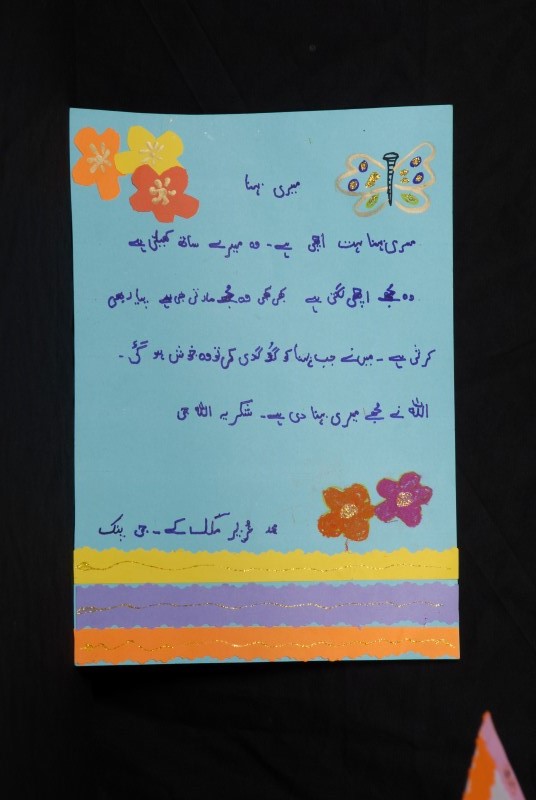 میری ہنا
میری ہنا بہت اچھی ہے۔ وہ میرے ساتھ کھیلتی ہے
وہ مجھے اچھی لگتی ہے کبھی کبھی وہ مجھے مارتی بھی ہے پیار بھی
کرتی ہے۔ میں نے جب ہنا کو گُدگُدی کی تو وہ خوش ہو گئی۔
اللہ نے مجھے میری ہنا دی ہے۔ شکریہ اللہ جی
محمد کے۔ جی پنک